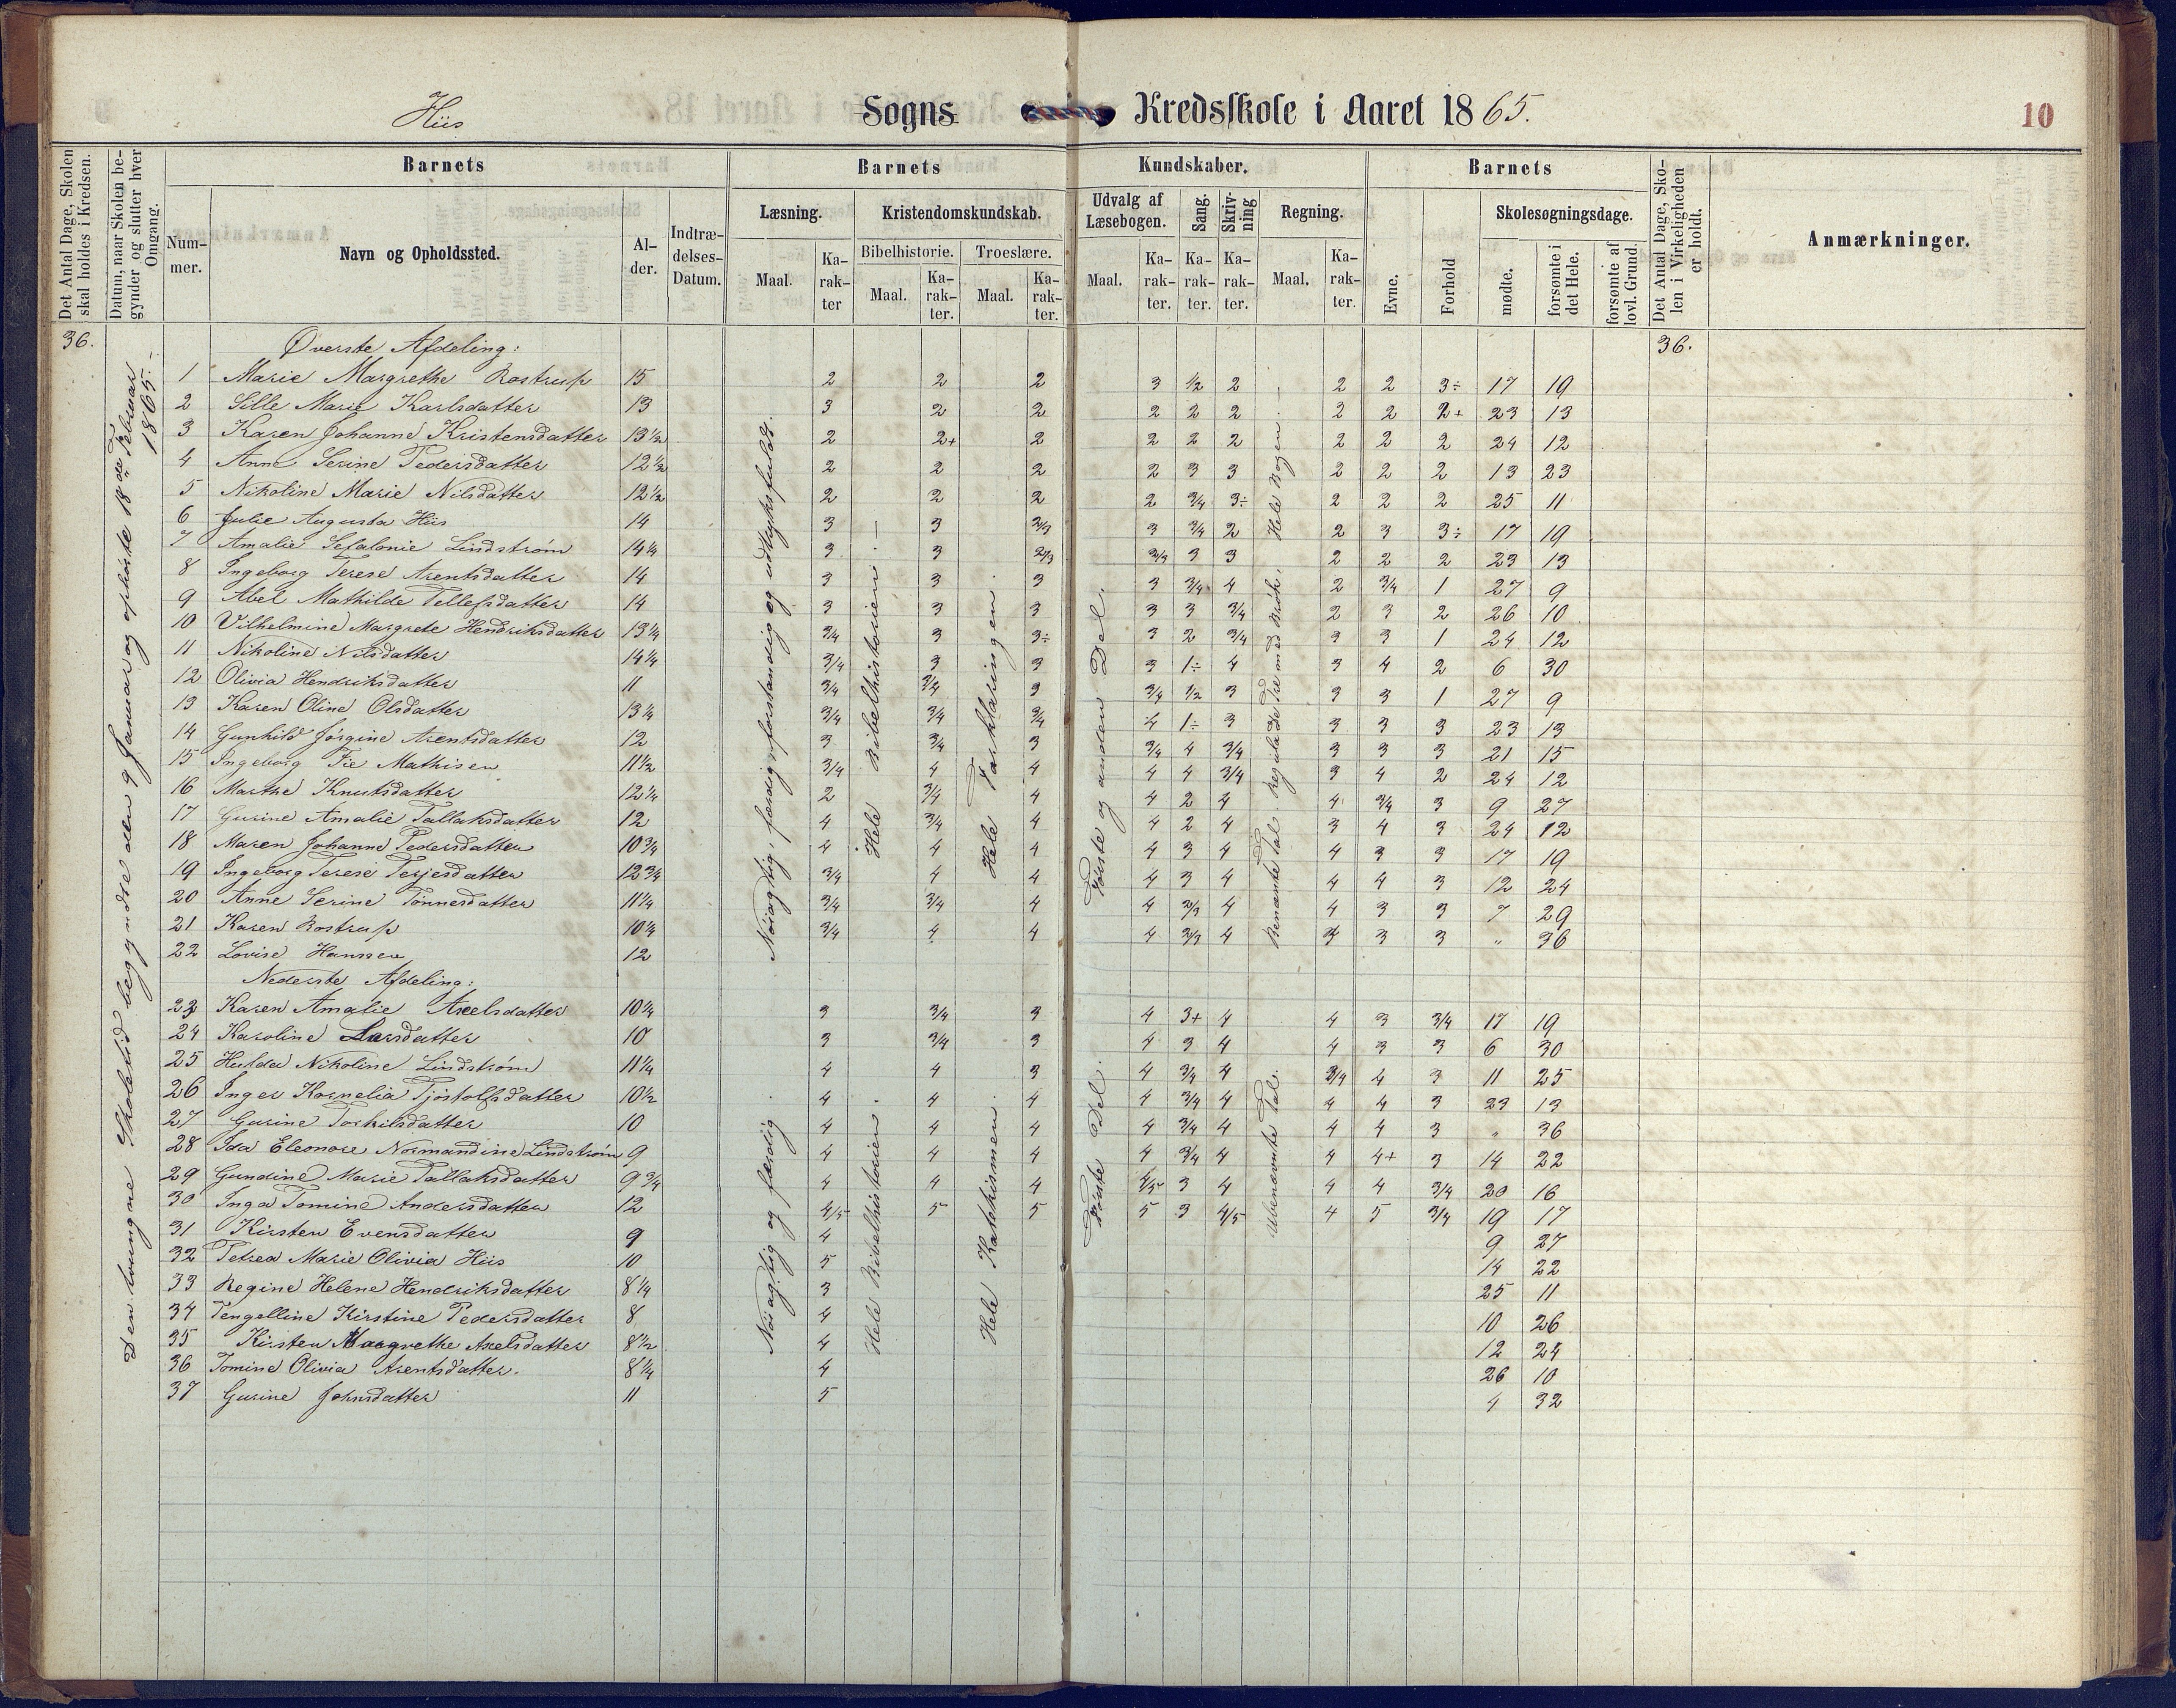 Hiis Sogns Kredsskole i Aaret 1865. 10
Det Antal Dage, Skolen skal holdes i Kredsen.
Datum, naar Skolen begynder og slutter hver Omgang.
Barnets Barnets Kundskaber. Barnets
Nummer. Navn og Opholdssted. Alder. Indtrædelses-Datum.
Læsning. Kristendomskundskab. Udvalg af Læsebogen. Sang. Skrivning Regning. Skolesøgningsdage.
Bibelhistorie. Troeslære.
Maal. Karakter Maal. Karakter. Maal. Karakter. Maal. Karakter. Karakter. Karakter. Maal. Karakter. Evne. Forhold mødte. forsømte i det Hele. forsømte af lovl. Grund.
Det Antal Dage, Skolen i Virkeligheden er holdt.
Anmærkninger.
36. Øverste Afdeling: 36.
Den tvungne Skoletid begyndte den 9 Januar og ophørte 18de Februar 1865.
Nøiagtig, færdig, forstandig og udtryksfuld.
Hele Bibelhistorien.
Hele Forklaringen.
Første og anden Del.
Benævnte Tal. Reguladetre med Brøk, Hele Bogen.
1 Marie Margrethe Rostrup 15 2 2 2 3 1/2 2 2 2 3÷ 17 19
2 Sille Marie Karlsdatter 13 3 2 2 2 2 2 2 2 2+ 23 13
3 Karen Johanne Kristensdatter 13 1/2 2 2+ 2 2 2 2 2 2 2 24 12
4 Anne Serine Pedersdatter 12 1/2 2 2 2 2 3 3 2 2 2 13 23
5 Nikoline Marie Nilsdatter 12 1/2 2 2 2 2 3/4 3÷ 2 2 2 25 11
6 Julie Augusta Hiis 14 3 3 2/3 3 3/4 2 2 3 3÷ 17 19
7 Amalie Sefalonie Lindstrøm 14 1/4 3 3 2/3 2/3 3 3 2 2 2 23 13
8 Ingeborg Terese Arentsdatter 14 3 3 3 3 3/4 4 2 3/4 1 27 9
9 Abel Mathilde Tellefsdatter 14 3 3 3 3 3 3/4 2 3 2 26 10
10 Vilhelmine Margrete Hendriksdatter 13 1/4 3/4 3 3÷ 3 2 3/4 3 3 1 24 12
11 Nikoline Nilsdatter 14 1/4 3/4 3 3 3 1÷ 4 3 4 2 6 30
12 Olivia Hendriksdatter 11 3/4 3/4 3 3/4 1/2 3 3 3 1 27 9
13 Karen Oline Olsdatter 13 1/4 3/4 3/4 3/4 4 1÷ 3 3 3 3 23 13
14 Gunhild Jørgine Arentsdatter 12 3 3/4 3 3/4 4 3/4 3 3 3 21 15
15 Ingeborg Fie Mathisen 11 1/2 3/4 4 4 4 4 3/4 3 4 2 24 12
16 Marthe Knutsdatter 12 1/4 2 3/4 4 4 2 4 4 3/4 3 9 27
17 Gurine Amalie Tallaksdatter 12 4 3/4 4 4 2 4 3 4 3 24 12
18 Maren Johanne Pedersdatter 10 3/4 4 4 4 4 3 4 4 3 3 17 19
19 Ingeborg Terese Terjesdatter 12 3/4 3/4 4 4 4 3 4 4 4 3 12 24
20 Anne Serine Tønnesdatter 11 1/4 3/4 3/4 4 4 2/3 4 4 3 3 7 29
21 Karen Rostrup 10 1/4 3/4 4 4 4 2/3 4 3 3 3 " 36
22 Lovise Hanssen 12
Nederste Afdeling:
Nøiagtig og færdig
Hele Bibelhistorien.
Hele Katekismen.
Første Del.
Ubenævnte Tal.
23 Karen Amalie Axelsdatter 10 1/4 3 3/4 3 4 3+ 4 4 3 3/4 17 19
24 Karoline Larsdatter 10 3 3/4 3 4 3 4 4 3 3 6 30
25 Hulda Nikoline Lindstrøm 11 1/4 4 4 3 4 3/4 4 3/4 4 3 11 25
26 Inger Kornelia Tjostolfsdatter 10 1/2 4 4 4 4 3/4 4 4 4 3 23 13
27 Gurine Torkilsdatter 10 4 4 4 4 3/4 4 4 4 3 " 36
28 Ida Eleonore Normandine Lindstrøm 9 4 4 4 4 3/4 4 4 4+ 3 14 22
29 Gundine Marie Tallaksdatter 9 3/4 4 4 4 4/5 3 4 4 4 3/4 20 16
30 Inga Tomine Andersdatter 12 4/5 5 5 5 3 4/5 4 5 3/4 19 17
31 Kirsten Evensdatter 9 4 9 27
32 Petrea Marie Olivia Hiis 10 5 14 22
33 Regine Helene Hendriksdatter 8 1/4 3 25 11
34 Tengelline Kirstine Pedersdatter 8 4 10 26
35 Kirsten Margrethe Axelsdatter 8 1/2 4 12 24
36 Tomine Olivia Arentsdatter. 8 1/4 4 26 10
37 Gurine Johnsdatter 11 5 4 32